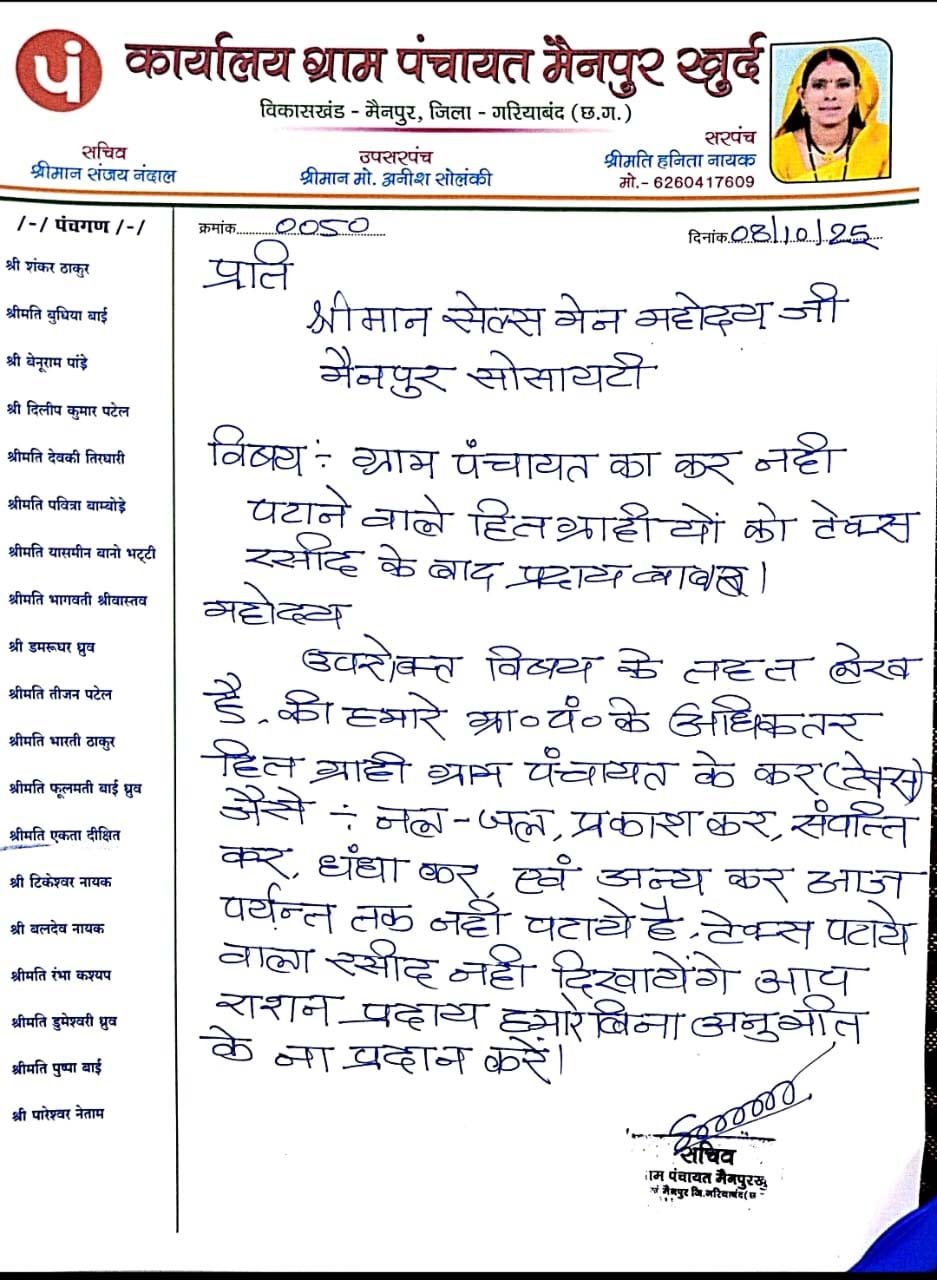 पं
कार्यालय ग्राम पंचायत मैनपुर खुर्द
विकासखंड - मैनपुर, जिला - गरियाबंद (छ.ग.)
सचिव
श्रीमान संजय नंदाल
उपसरपंच
श्रीमान मो. अनीश सोलंकी
सरपंच
श्रीमति हनिता नायक
मो.- 6260417609
/-/ पंचगण /-/
श्री शंकर ठाकुर
श्रीमति बुधिया बाई
श्री बेनूराम पांड़े
श्री दिलीप कुमार पटेल
श्रीमति देवकी तिरधारी
श्रीमति पवित्रा बाम्बोड़े
श्रीमति यासमीन बानो भट्टी
श्रीमति भागवती श्रीवास्तव
श्री डमरूधर ध्रुव
श्रीमति तीजन पटेल
श्रीमति भारती ठाकुर
श्रीमति फूलमती बाई ध्रुव
श्रीमति एकता दीक्षित
श्री टिकेश्वर नायक
श्री बलदेव नायक
श्रीमति रंभा कश्यप
श्रीमति डुमेश्वरी ध्रुव
श्रीमति पुष्पा बाई
श्री पारेश्वर नेताम
क्रमांक 0050
दिनांक 08/10/25
प्रति
श्रीमान सेल्स मेन महोदय जी
मैनपुर सोसायटी
विषय :- ग्राम पंचायत का कर नही
पटाने वाले हितग्राहीयों को टेक्स
रसीद के बाद प्रदाय बाबत् ।
महोदय
उपरोक्त विषय के तहत लेख
है. की हमारे ग्रा॰ पं॰ के अधिकतर
हितग्राही ग्राम पंचायत के कर (टेक्स)
जैसे :- नल-जल, प्रकाश कर, संपत्ति
कर, धंधा कर, एवं अन्य कर आज
पर्यन्त तक नही पटाये है. टेक्स पटाये
वाला रसीद नही दिखायेंगे आप
राशन प्रदाय हमारे बिना अनुमति
के ना प्रदान करें।
सचिव
ाम पंचायत मैनपुरखु
मैनपुर जि.गरियाबंद(छ